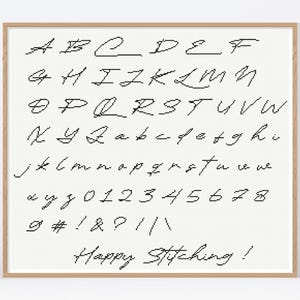 A B C D E F
G H I J K L M N
O P Q R S T U V W
X Y Z a b c d e f g h i
j k l m n o p q r s t u v w
x y z 0 1 2 3 4 5 6 7 8
9 # ! & ? ! / | \
Happy Stitching !